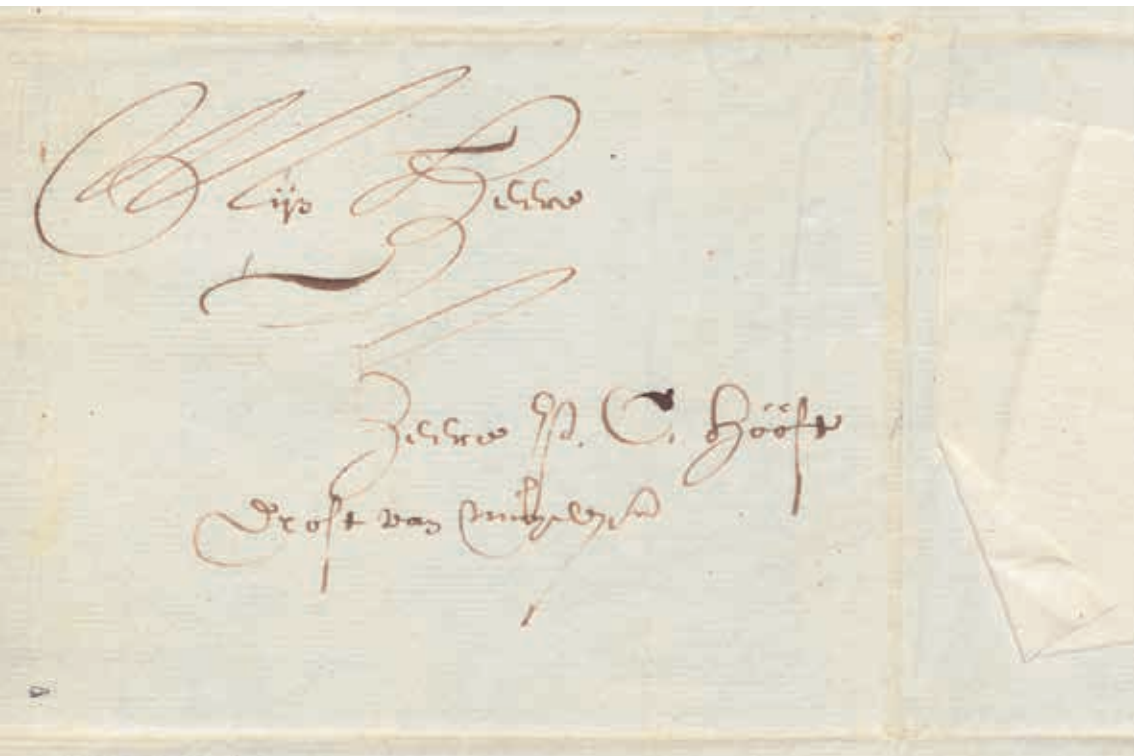 Mijn Heere
Heere P. C. Hooft
Drost van